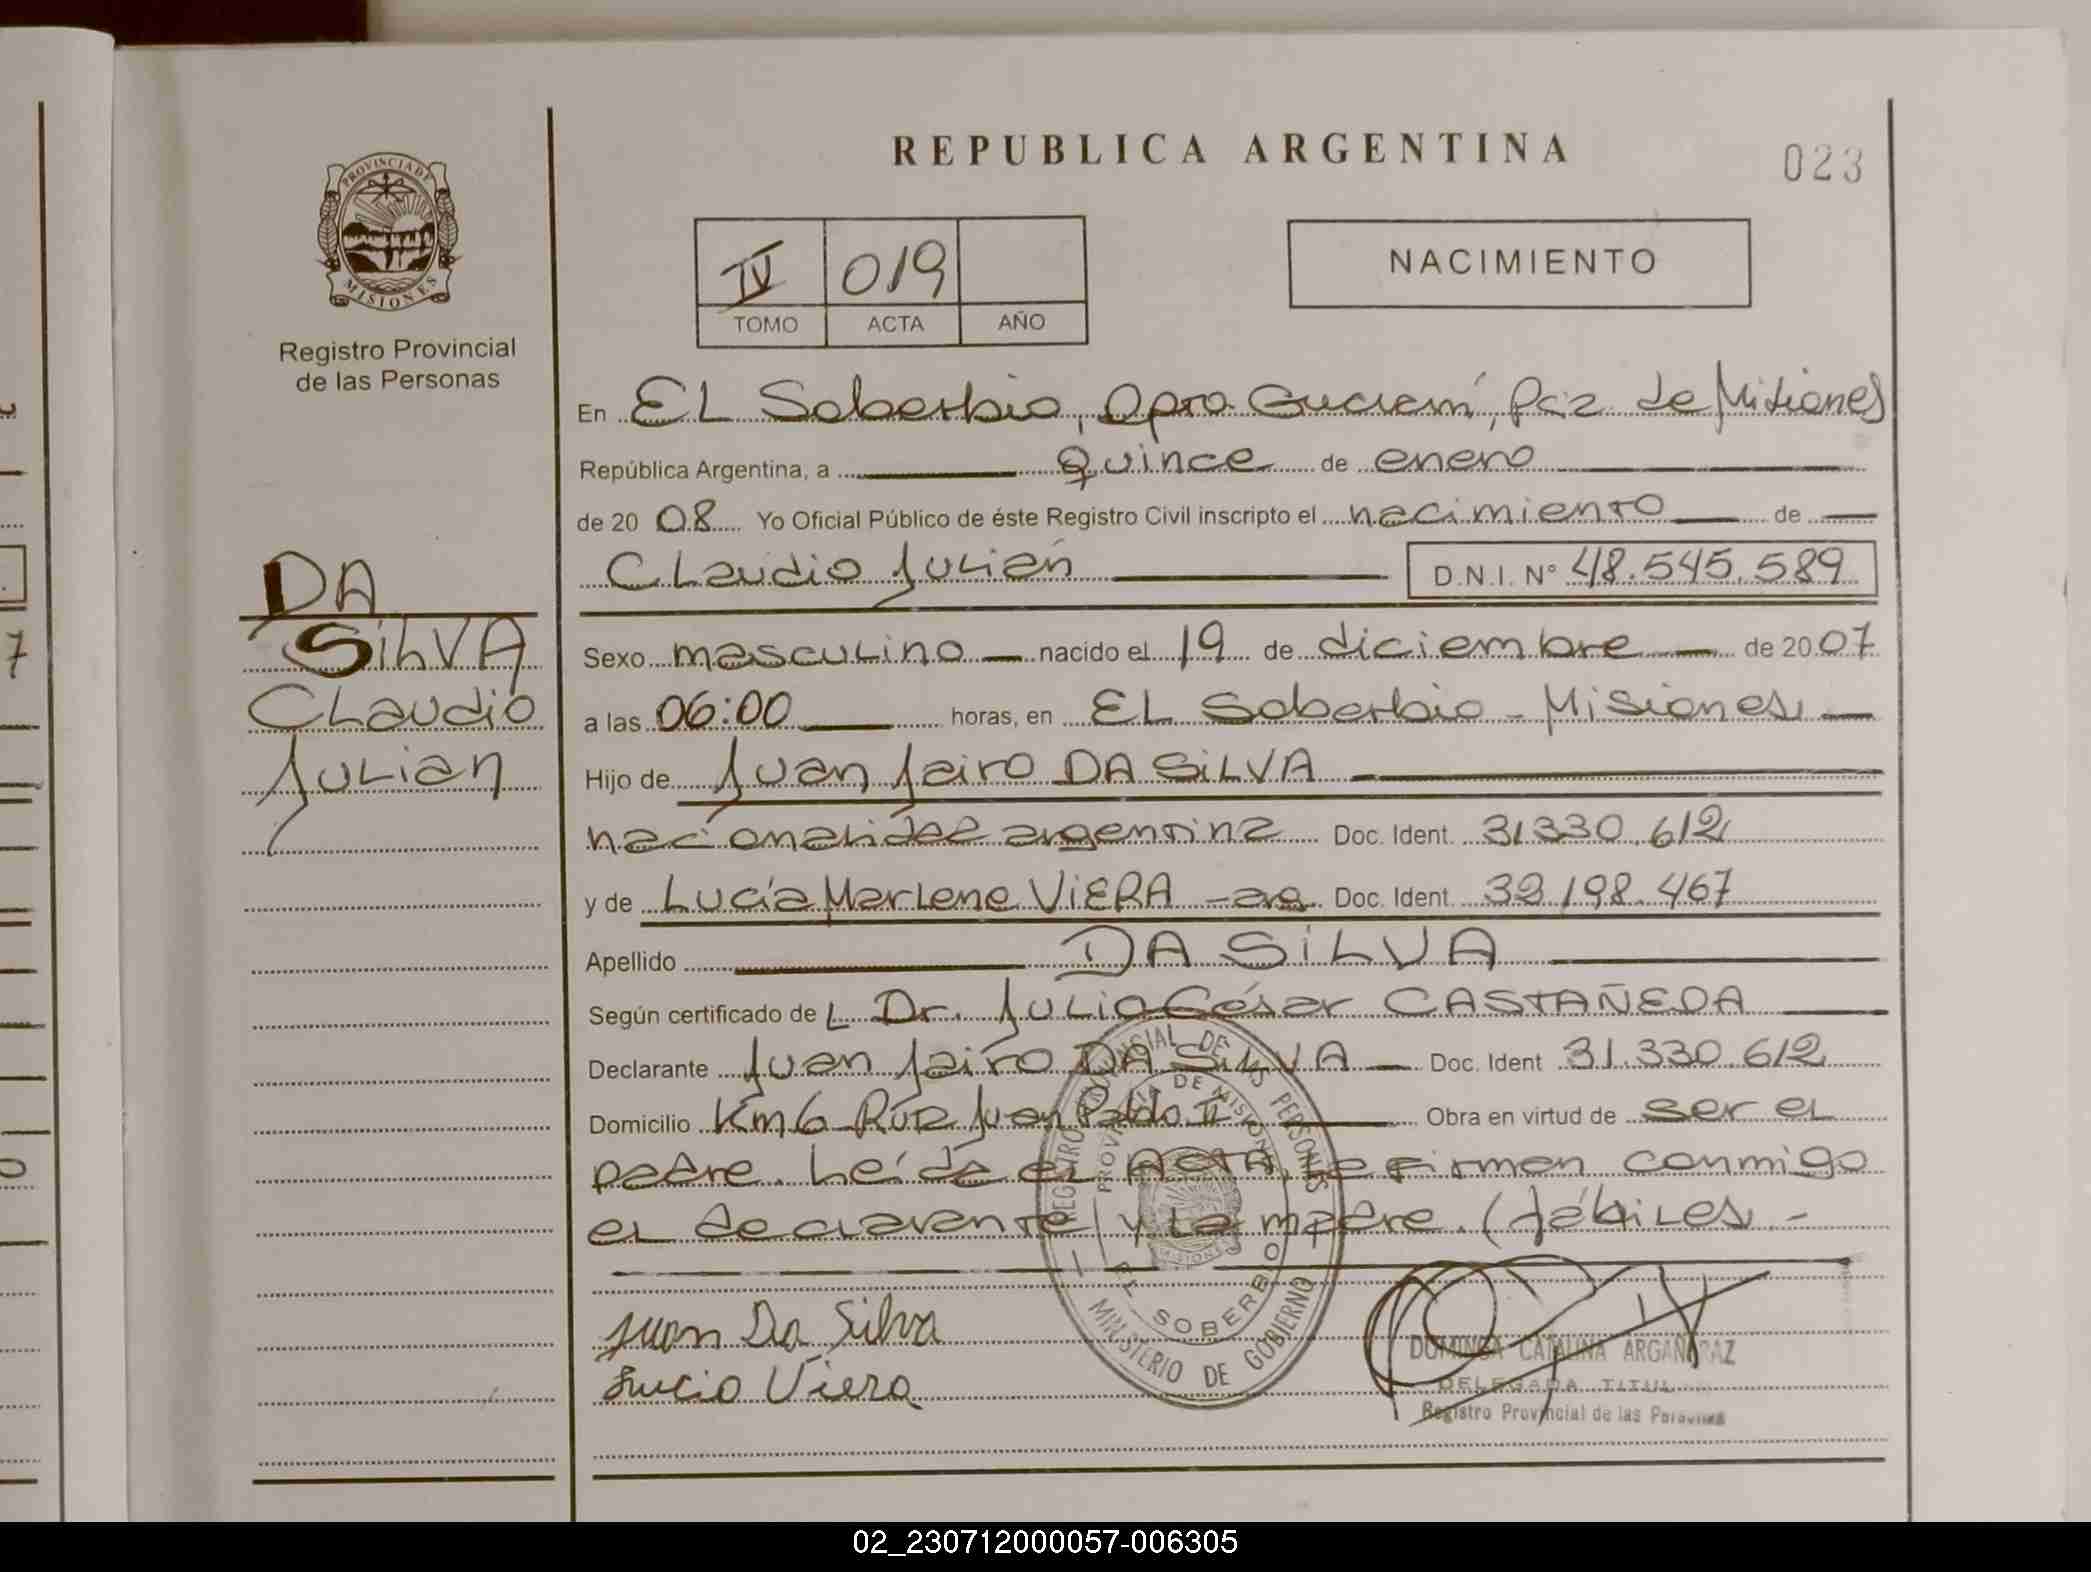 REPUBLICA ARGENTINA
023
PROVINCIA DE
MISIONES
Registro Provincial
de las Personas
IV 019
TOMO ACTA AÑO
NACIMIENTO
En EL Soberbio, Dpto Guaraní, Pcia de Misiones
República Argentina, a Quince de enero
de 20 08 Yo Oficial Público de éste Registro Civil inscripto el nacimiento de
Claudio Julián D.N.I. Nº 48.545.589
DA
SILVA
Claudio
Julian
Sexo masculino nacido el 19 de diciembre de 20 07
a las 06:00 horas, en EL Soberbio - Misiones
Hijo de Juan Jairo DA SILVA
nacionalidad argentina Doc. Ident. 31.330.612
y de Lucía Marlene VIERA - arg Doc. Ident. 39.198.467
Apellido DA SILVA
Según certificado de L Dr. Julio César CASTAÑEDA
Declarante Juan Jairo DA SILVA Doc. Ident 31.330.612
Domicilio Km 6 Ruta Juan Pablo II Obra en virtud de ser el
padre. Leída el ACTA, la firman conmigo
el declarante y la madre. (hábiles -
REGISTRO PROVINCIAL DE LAS PERSONAS
PROVINCIA DE MISIONES
EL SOBERBIO
MINISTERIO DE GOBIERNO
Juan Da Silva
Lucia Viera
DOMINGA CATALINA ARGAÑARAZ
DELEGADA TITULAR
Registro Provincial de las Personas
02_230712000057-006305